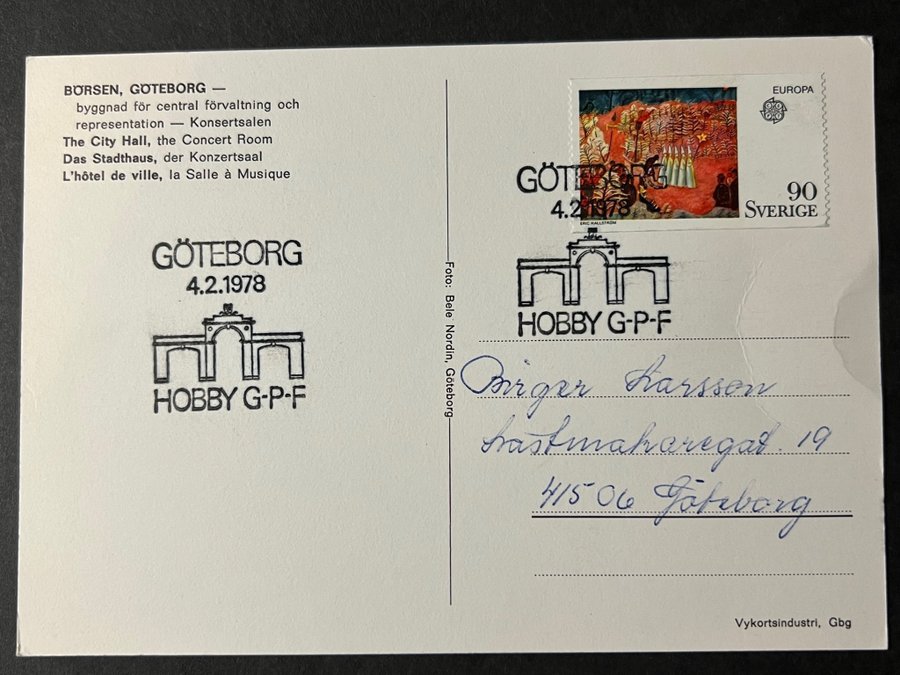 BÖRSEN, GÖTEBORG —
byggnad för central förvaltning och
representation — Konsertsalen
The City Hall, the Concert Room
Das Stadthaus, der Konzertsaal
L'hôtel de ville, la Salle à Musique
GÖTEBORG
4.2.1978
HOBBY G-P-F
Foto: Bele Nordin, Göteborg
EUROPA
90
SVERIGE
ERIC HALLSTRÖM
GÖTEBORG
4.2.1978
HOBBY G-P-F
Birger Larsson
Lästmakaregat. 19
415 06 Göteborg
Vykortsindustri, Gbg